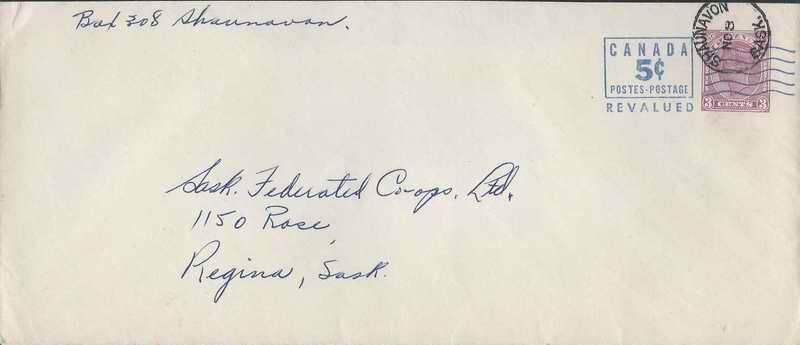 Box 308 Shaunavon.
CANADA
5¢
POSTES-POSTAGE
REVALUED
SHAUNAVON
SASK.
NO 3
3 CENTS 3
Sask. Federated Co-ops. Ltd.
1150 Rose
Regina, Sask.